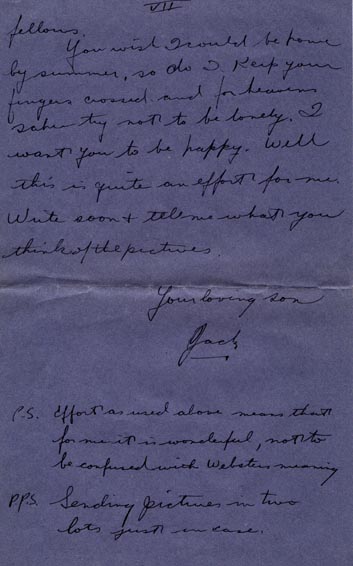 VII
fellows.
You wish I could be home
by summer, so do I. Keep your
fingers crossed and for heavens
sake try not to be lonely. I
want you to be happy. Well
this is quite an effort for me.
Write soon & tell me what you
think of the pictures.
Your loving son
Jack
P.S. Effort as used above means that
for me it is wonderful, not to
be confused with Websters meaning
P.P.S. Sending pictures in two
lots just in case.